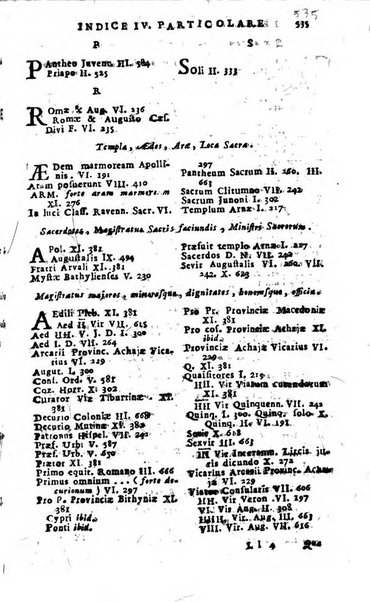 535
INDICE IV. PARTICOLARE
535
P
Pantheo Juveni. III. 584
Priapo H. 525
R
Romæ & Aug. VI. 236
Romæ & Augusto Cæs.
Divi F. VI. 235
S
Soli H. 333
Templa, Ædes, Aræ, Loca Sacra.
ÆDem marmoream Apolli-
nis. VI. 191
Aram posuerunt VIII. 410
ARM. forte aram marmer. m
XI. 276
In luci Class. Ravenn. Sacr. VI.
297
Pantheum Sacrum H. 260. III.
663
Sacrum Clitumno VI. 242
Sacrum Junoni I. 302
Templum Arnæ I. 217
Sacerdotes, Magistratus Sacris faciundis, Ministri Sacrorum.
APol. XI. 381
Augustalis IX. 494
Fratri Arvali XI. 381
Mystæ Bathylienses V. 230
Præfuit templo Arnæ I. 217
Sacerdos D. N. VII. 242
Sevir Augustalis VI. 260. VII.
242. X. 623
Magistratus majores, minuresque, dignitates, honoresque, officia.
AEdili Pleb. XI. 381
Aed II Vir VII. 615
Aed HH. V. J. D. I. 300
Aed I. D. VII. 264
Arcarii Provinc. Achajæ Vica-
rius VI. 229
Augur. L. 300
Consf. Ord. V. 582
Coz. Horr. X. 302
Curator Viæ Tiburtinæ XI.
381
Decurio Coloniæ HI. 668
Decurio, Mutinæ XI. 198
Patronus Hispel. VII. 242
Præf. Urbi V. 582
Præf. Urb. V. 230
Prætor XI. 381
Primo equit. Romano III. 666
Primus omnium ... (forte de-
curionum) VI. 297
Pro P. Provinciæ Bithyniæ XI.
381
Cypri ibid.
Ponti ibid.
Pro Pr. Provinciæ Macedoniæ
XI. 381
Pro cos. Provinciæ Achajæ XI.
ibid.
Provinciæ Achajæ Vicarius VI.
229
Q. XI. 381
Qualitores I. 219
HII. Vir Viarum curandarum
XI. 381
HH Vir Quinquenn. VII. 242
Quinq. I. 300. Quinq. solo X.
602. Gn. H. VI. 191
Sevir X. 608
Sexvir III. 663
In Vir Inceramn. Lircis ju-
ris dicundo X. 271
Vicarius Arcarii Provinc. Achajæ
VI. 229
Viator Consularis VII. 606
HH. Vir Veron VI. 197
II. Vir Aug H. 308
HIIII. Vir. Aug. III. 663
VIII. Vir Aug VII. 616
L l 4 Qua